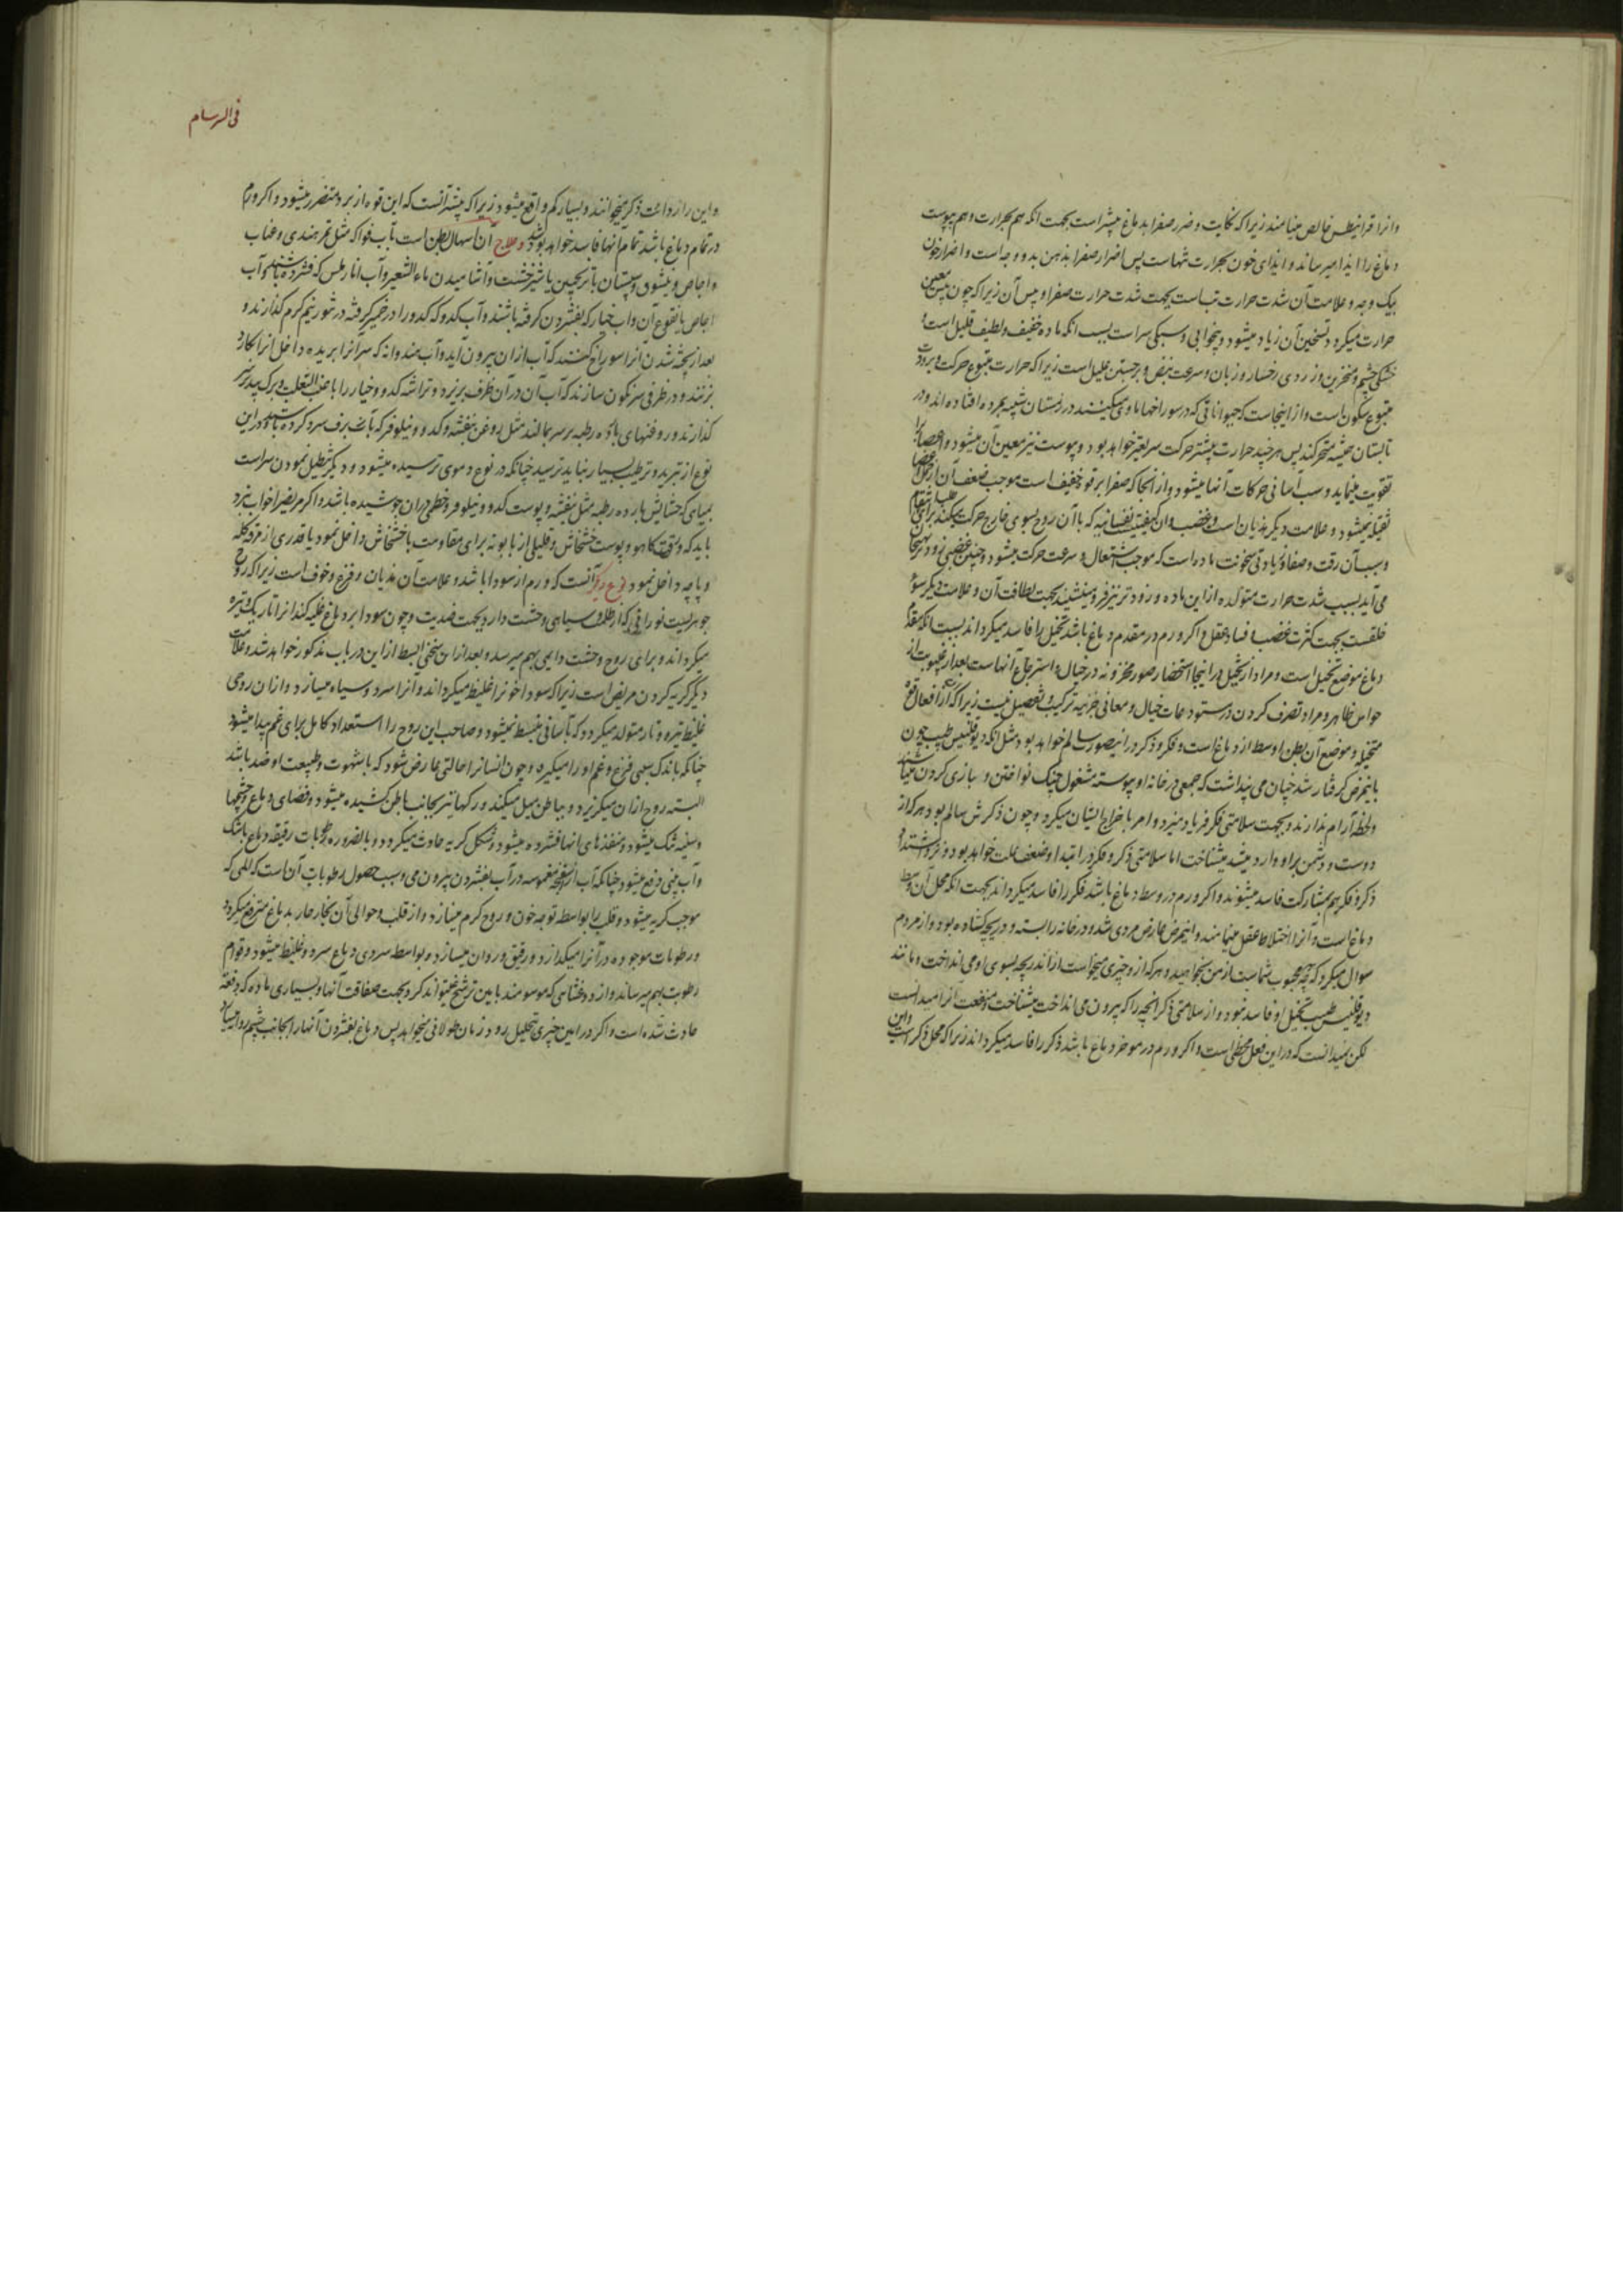 وانرا قرانیطس خالص مینامند زیرا که نکایت و ضرر صفرا بدماغ بیشتر است بجهت انکه هم بحرارت و هم بیبوست
دماغ را ایذا میرساند و ایذای خون بحرارت تنهاست پس اضرار صفرا بذهن بدو وجه است و اضرار خون
بیک وجه و علامت آن شدت حرارت تب است بجهت شدت حرارت صفرا و یبس آن زیرا که چون یبس معین
حرارت میکردد تسخین آن زیاد میشود و بیخوابی و سبکی سر است بسبب انکه ماده خفیف و لطیف قلیل است و
خشکی چشم و منخرین و زردی رخسار و زبان و سرعت نبض و برجستن علیل است زیرا که حرارت متبوع حرکت و برودت
متبوع سکون است و از اینجاست که حیواناتی که در سوراخها ماوی میکنند در زمستان شبیه بمرده افتاده اند و در
تابستان همیشه متحرکند پس هر چند حرارت بیشتر حرکت سریعتر خواهد بود و یبوست نیز معین آن میشود و اعصاب را
تقویت مینماید و سبب آسانی حرکات آنها میشود و از انجا که صفرا بر قوه خفیف است موجب ضعف آن از حمل اعضا
ثقیله نمیشود و علامت دیکر هذیان است و غضب و ان کیفیت نفسانیه که با آن روح بسوی خارج حرکت میکند برای طلب انتقام
و سبب آن رقت و صفا و زیادتی سخونت ماده است که موجب اشتعال و سرعت حرکت میشود و چنین غضبی زود بهیجان
می آید بسبب شدت حرارت متولده از این ماده و زودتر نیز فرو مینشیند بجهت لطافت آن و علامت دیکر سوء
خلقست بجهت کثرت غضب و فساد عقل و اکر ورم در مقدم دماغ باشد تخیل را فاسد میکرداند بسبب انکه مقدم
دماغ موضع تخیل است و مراد از تخیل در اینجا استحضار صور مخزونه در خیال و استرجاع آنهاست بعد از غیبوبت از
حواس ظاهر و مراد تصرف کردن در مستودعات خیال و معانی جزئیه بترکیب و تفصیل نیست زیرا که آن از افعال قوه
متخیله و موضع آن بطن اوسط از دماغ است و فکر و ذکر در اینصورت سالم خواهد بود مثل انکه دیوقلیس طبیب چون
باینمرض کرفتار شد چنان می پنداشت که جمعی در خانه او پیوسته مشغول چنک نواختن و بازی کردن میباشند
و لحظه آرام ندارند و بجهت سلامتی فکر فریاد میزد و امر باخراج ایشان میکرد و چون ذکرش سالم بود هر که از
دوست و دشمن بر او وارد میشد میشناخت اما سلامتی ذکر و فکر در ابتدا و ضعف علت خواهد بود و نزد اشتداد
ذکر و فکر هم بمشارکت فاسد میشوند و اکر ورم در وسط دماغ باشد فکر را فاسد میکرداند بجهت انکه محل آن وسط
دماغ است و آنرا اختلاط عقل مینامند و اینمرض عارض مردی شد و در خانه را بسته و دریچه کشاده بود و از مردم
سوال میکرد که چه محبوب شماست از من بخواهید و هر که از و چیزی میخواست از اندریچه بسوی او می انداخت و مانند
دیوقلیس طبیب تخیل او فاسد نبود و از سلامتی ذکر انچه را که بیرون می انداخت میشناخت و منفعت آنرا میدانست
لکن نمیدانست که در این فعل مخطی است و اکر ورم در موخر دماغ باشد ذکر را فاسد میکرداند زیرا که محل ذکر است و این
فی السرسام
و این را زدائت ذکر میخوانند و بسیار کم واقع میشود زیرا که بیشتر آنست که این قوه از برد متضرر میشود و اکر ورم
در تمام دماغ باشد تمام آنها فاسد خواهد بود و علاج آن اسهال بطن است بآب فواکه مثل تمر هندی و عناب
و اجاص و مشمش و سپستان با ترنجبین یا شیرخشت و آشامیدن ماء الشعیر و آب انار ملس که فشرده باشند و آب
اجاص یا نقوع آن و آب خیار که بفشردن کرفته باشند و آب کدو که کدو را در خمیر کرفته در تنور نیم کرم کذارند و
بعد از پخته شدن آنرا سوراخ کنند که آب از ان بیرون آید و آب هندوانه که سر آنرا بریده داخل انرا کارد
بزنند و در ظرفی سرنکون سازند که آب آن در آن ظرف بریزد و تراشه کدو و خیار را با عنب الثعلب و برک بید بر سر
کذارند و روغنهای بارده رطبه بر سر بمالند مثل روغن بنفشه و کدو و نیلوفر که بآب یخ و برف سرد کرده باشند و در این
نوع از تبرید و ترطیب بسیار نباید ترسید چنانکه در نوع دموی ترسیده میشود و دیکر تنطیل نمودن سر است
بمیاهی که حشایش بارده رطبه مثل بنفشه و پوست کدو و نیلوفر و خطمی در ان جوشیده باشد و اکر مریض را خواب نبرد
باید که ورق کاهو و پوست خشخاش و قلیلی از بابونه برای مقاومت با خشخاش داخل نمود یا قدری از مرق کله
و پاچه داخل نمود نوع دیکر آنست که ورم از سودا باشد و علامت آن هذیان و فزع و خوف است زیرا که روح
جوهریست نورانی که از ظلمت و سیاهی وحشت دارد بجهت ضدیت و چون سودا بر دماغ غلبه کند انرا تاریک و تیره
میکرداند و برای روح وحشت دایمی بهم میرسد و بعد از این سخنی ابسط از این در باب مذکور خواهد شد و علامت
دیکر کریه کردن مریض است زیرا که سودا خونرا غلیظ میکرداند و آنرا سرد و سیاه میسازد و از ان روحی
غلیظ تیره و تار متولد میکردد که بآسانی منبسط نمیشود و صاحب این روح را استعداد کامل برای غم پیدا میشود
چنانکه باندک سببی فزع و غم او را میکیرد و چون انسانرا حالتی عارض شود که با شهوت و طبیعت او ضد باشد
البته روح از ان میکریزد و بباطن میل میکند و رکها نیز بجانب باطن کشیده میشود و فضای دماغ و چشمها
و سینه تنک میشود و منفذهای انها فشرده میشود و شکل کریه حادث میکردد و بالضروره رطوبات رقیقه دماغ باشک
و آب بینی دفع میشود چنانکه آب از اسفنجه مغموسه در آب بفشردن بیرون می و سبب حصول رطوبات آن است که المی که
موجب کریه میشود و قلب را بواسطه توجه خون و روح کرم میسازد و از قلب و حوالی آن بخار حار بدماغ مترفع میکردد
و رطوبات موجوده در آنرا میکدازد و رقیق و روان میسازد و بواسطه سردی دماغ سرد و غلیظ میشود و قوام
رطوبت بهم میرساند و از دو غشائی که موسومند بامین ترشح نمیتواند کرد بجهت صفاقت آنها و بسیاری ماده که دفعة
حادث شده است و اکر در امین چیزی تحلیل رود زمان طولانی میخواهد پس دماغ بفشردن آنها را بجانب چشم روان میسازد